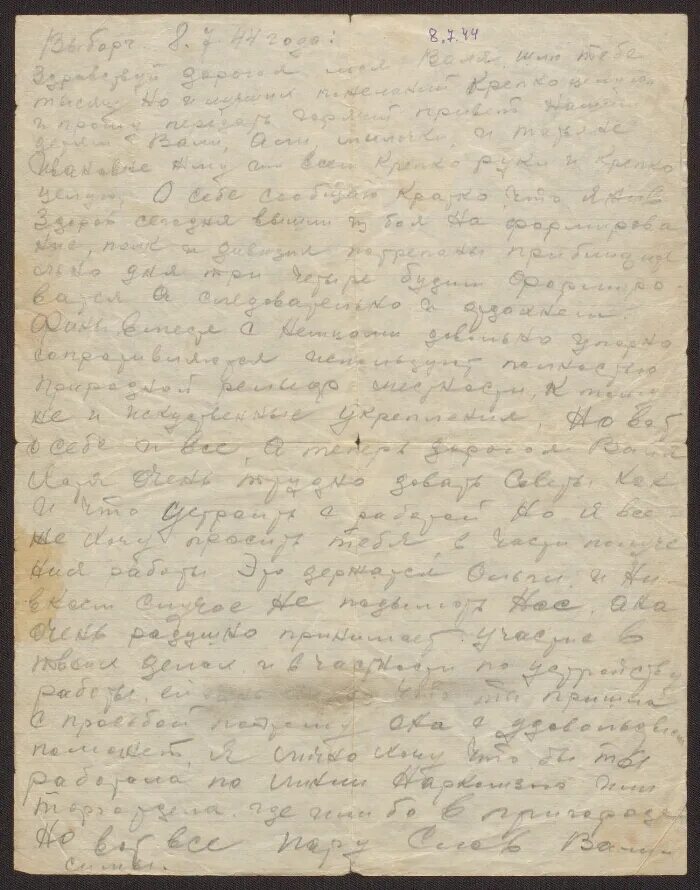 8.7.44
Выборг 8.7.44 года:
Здравствуй дорогая моя Валя, шлю тебе
тысячу но и лучших пожеланий Крепко целую
и прошу передать горячий привет нашей
Вали, Аси и Татьяне
Ивановне жму им всем Крепко руки и Крепко
целую. О себе сообщаю Кратко что я жив
Здоров сегодня вышли из боя На формирова
ние, полк и дивизия потрепаны приблизит
ельно дня три четыре будим Формиро-
ватся А следовательно и отдохнем.
Финны вместе с немцами довольно упорно
сопротивляются используют полностью
природной рельеф местности, К тому
же и Искуственные Укрепления. Но вот
о себе и все, А теперь дорогая Валя
Хотя Очень трудно довать Советы Как
И что устроить с работой Но Я все-
же Хочу просить тебя, в части получе
ния работы Это держатся Ольги. и Ни
вкоем Случае Не подымать Нос, ана
Очень радушно принимает участие в
твоих делах и в частности по устройству
работы, ей что ты пришла
с просьбой потому ана с удовольствием
поможет, Я лично Хочу что бы ты
работала по линии Наркомзема или
Торготдела. где либо в пригороде
Но вот все пару Слов Вали